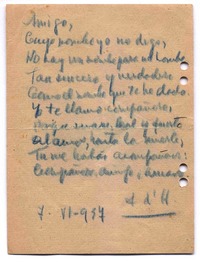 Amigo,
Cuyo nombre yo no digo,
No hay un nombre para no nombre
Tan sincero y verdadero
Como el nombre que te he dado.
Y te llamo compañero,
y
al amor, ante la muerte,
Tu me habías acompañado:
Compañero, amigo, amado
A d'H
7-VI-957